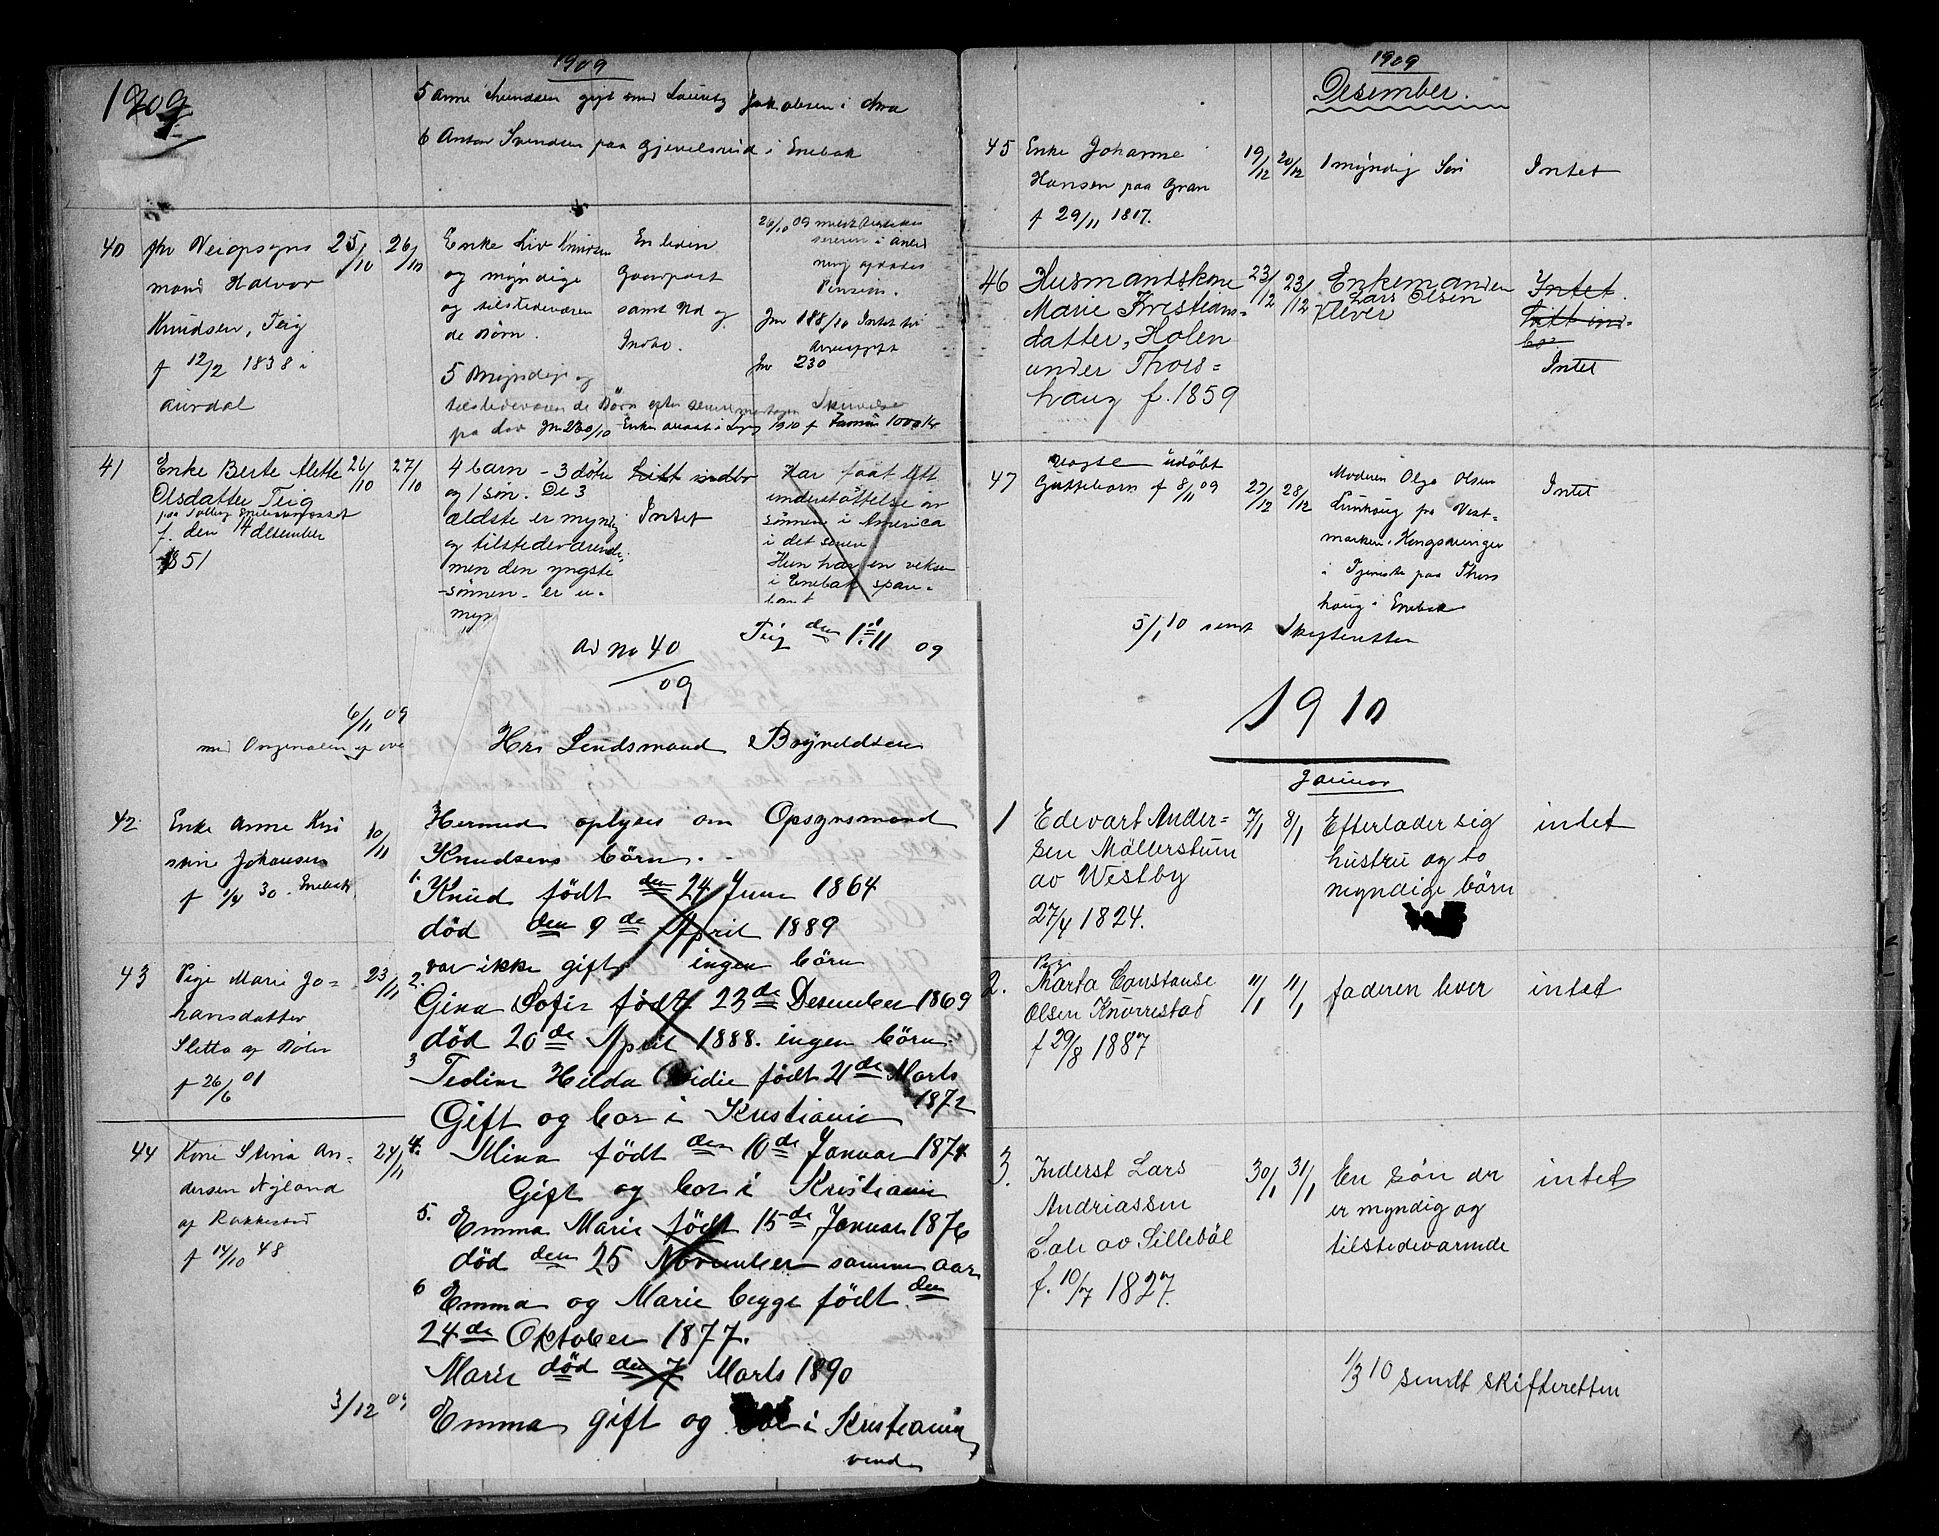 1909
1909
5 Anne Svendsen gift med Lauritz Jakobsen i
6 Anton Svendsen paa Gjevelsrud i Enebak
40 fhv Veiopsyns
mand Halvor
Knudsen, Teig
f 12/2 1838 i
Aurdal
25/10 26/10
Enke Liv Knudsen
og myndige
og tilstedeværen
de Børn.
5 myndige og
tilstedeværende Børn efter
En liden
Gaardpart
samt Ind og
Indbo.
Pension.
Jnr 188/10 Intet til
Arveafgift
Jnr 230
41 Enke Berte Alette
Olsdatter Teig
f. den 14 desember
1851
26/10 27/10
4 barn - 3 døtre
og 1 søn. De 3
ældste er myndig
og tilstedeværende.
men den yngste
sønnen - er u-
myn
Litt indbo
Intet
Har faat litt
understøttelse av
sønnen i America
i det senere
Hun har en veksel
i Enebak spare-
6/11 09
42 Enke Anne Kri
stine Johansen
f 1/4 30. Enebak
10/11
43 Pige Marie Jo-
hansdatter
Sletta af
f 26/6 01
23/11
44 Kone Stina An-
dersen Nyland
af Rakkestad
f 14/10 48
24/11
3/12 09
Ad No 40/09
Teig den 1/11 09
Hr Lendsmand Bøyneldsen
Hermed oplyses om Opsynsmand
Knudsens börn. -
1. Knud født den 24 Juni 1864
död den 9de April 1889
var ikke gift ingen börn
2. Gina Sofie födt 23de Desember 1869
död 20de April 1888. ingen börn.
3 Tedine Hilda födt 21de Marts
1872
Gift og bor i Kristiania
4. Mina födt den 10de Januar 1874
Gift og bor i Kristiania
5. Emma Marie födt 15de Januar 1876
död den 25 November samme aar
6 Emma og Marie begge födt den
24de Oktober 1877.
Marie död den 7 Marts 1890
Emma gift og bor i Kristiania
vend
1909
Desember.
45 Enke Johanne
Hansen paa Gran
f 29/11 1817.
19/12 20/12 1 myndig Søn Intet
46 Husmandskone
Marie Kristians-
datter, Holen
under Thors-
haug f. 1859
23/12 23/12 Enkemanden
Lars Olsen
lever
Intet.
Litt ind-
bo
Intet
47 uægte udøbt
Guttebarn f 8/11 09
27/12 28/12 Moderen Olga Olsen
paa Vest-
marken, Kongsvinger
i Tjeneste paa Thors
haug i Enebak
Intet
5/1 10 sendt Skifteretten
1910
Januar
1 Edevart Ander-
sen Møllerstuen
av Vestby
27/4 1824.
7/1 8/1 Efterlader sig
hustru og to
myndige børn
intet
2. Pige
Marta Constanse
Olsen Knorrestad
f 29/8 1887
11/1 11/1 faderen lever intet
3. Inderst Lars
Andriassen
av Sillebøl
f. 10/7 1827.
30/1 31/1 En søn der
er myndig og
tilstedeværende
intet
1/3 10 sendt skifteretten